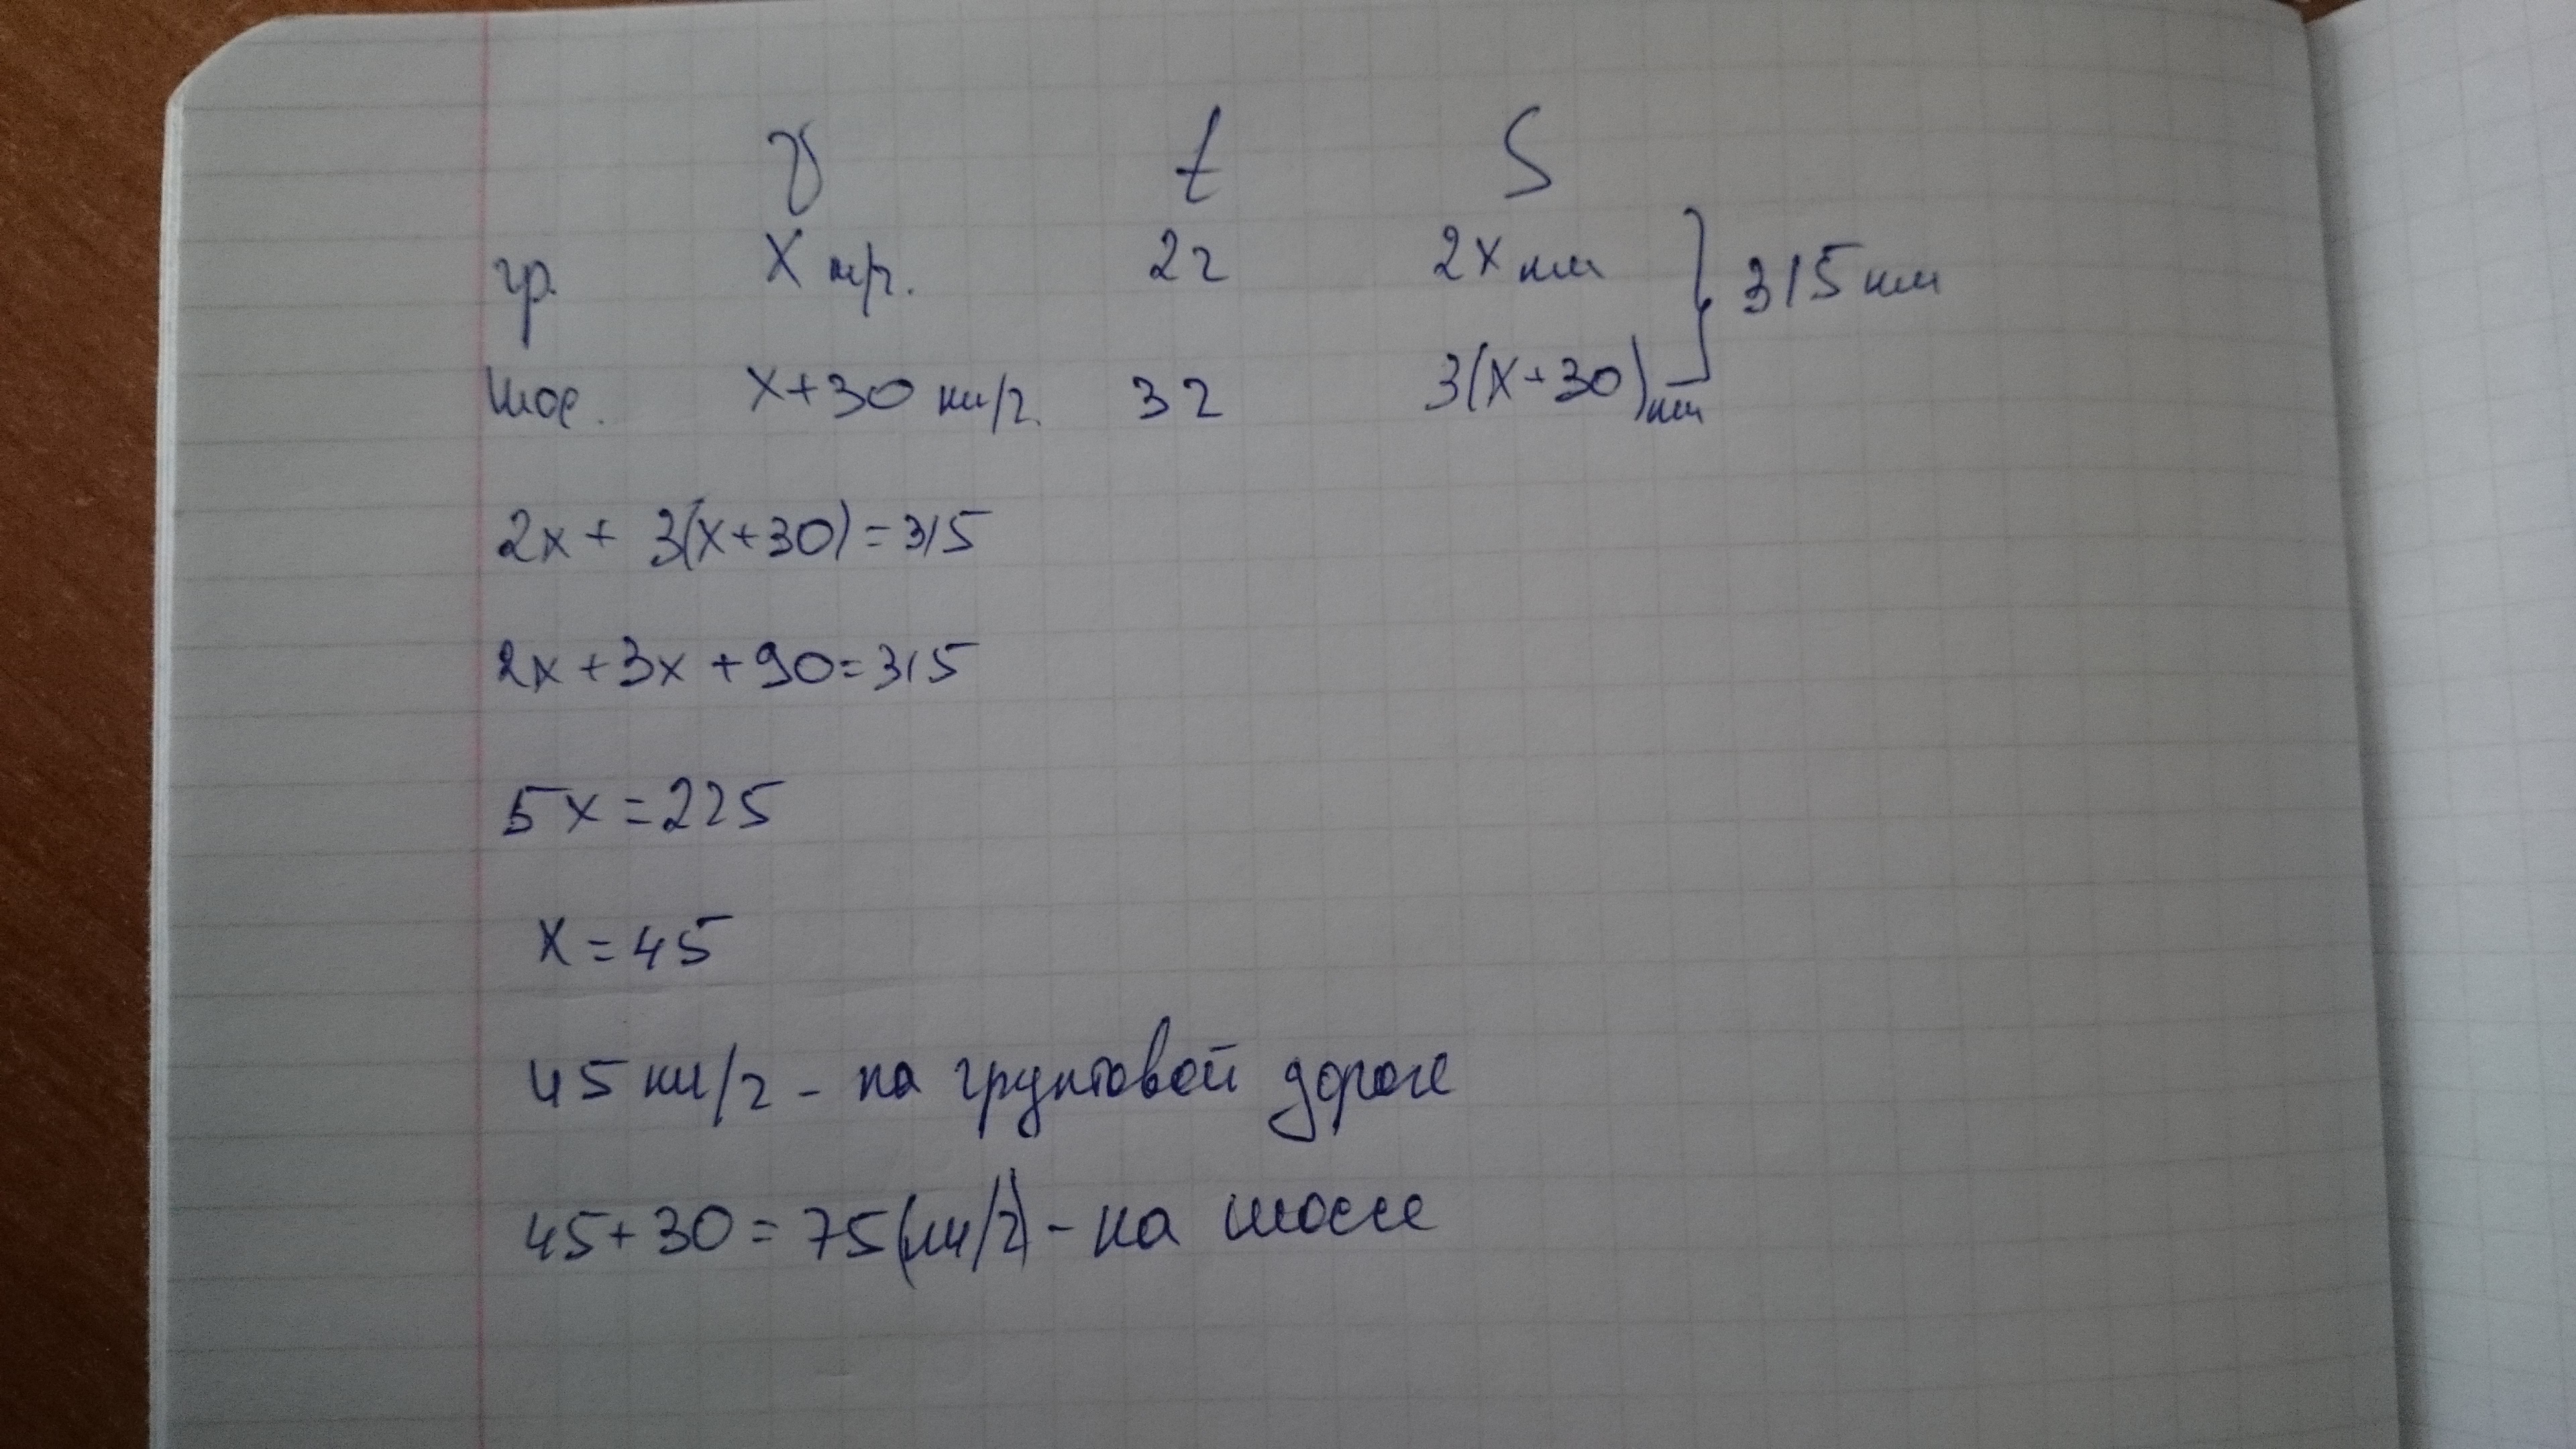 V t S
гр. x км/ч. 2ч 2x км } 315 км
шос. x+30 км/ч. 3ч 3(x+30) км
2x + 3(x+30) = 315
2x + 3x + 90 = 315
5x = 225
x = 45
45 км/ч - на грунтовой дороге
45 + 30 = 75 (км/ч) - на шоссе